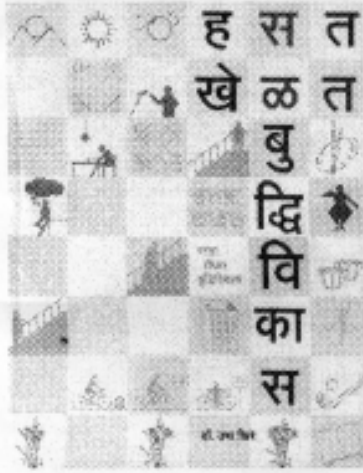 हसत
खेळत
बुद्धिविकास